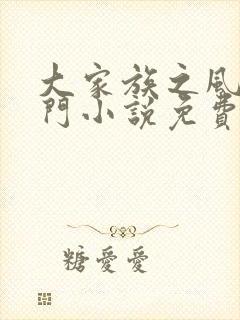 大家族之風
門小說免費
糖愛愛